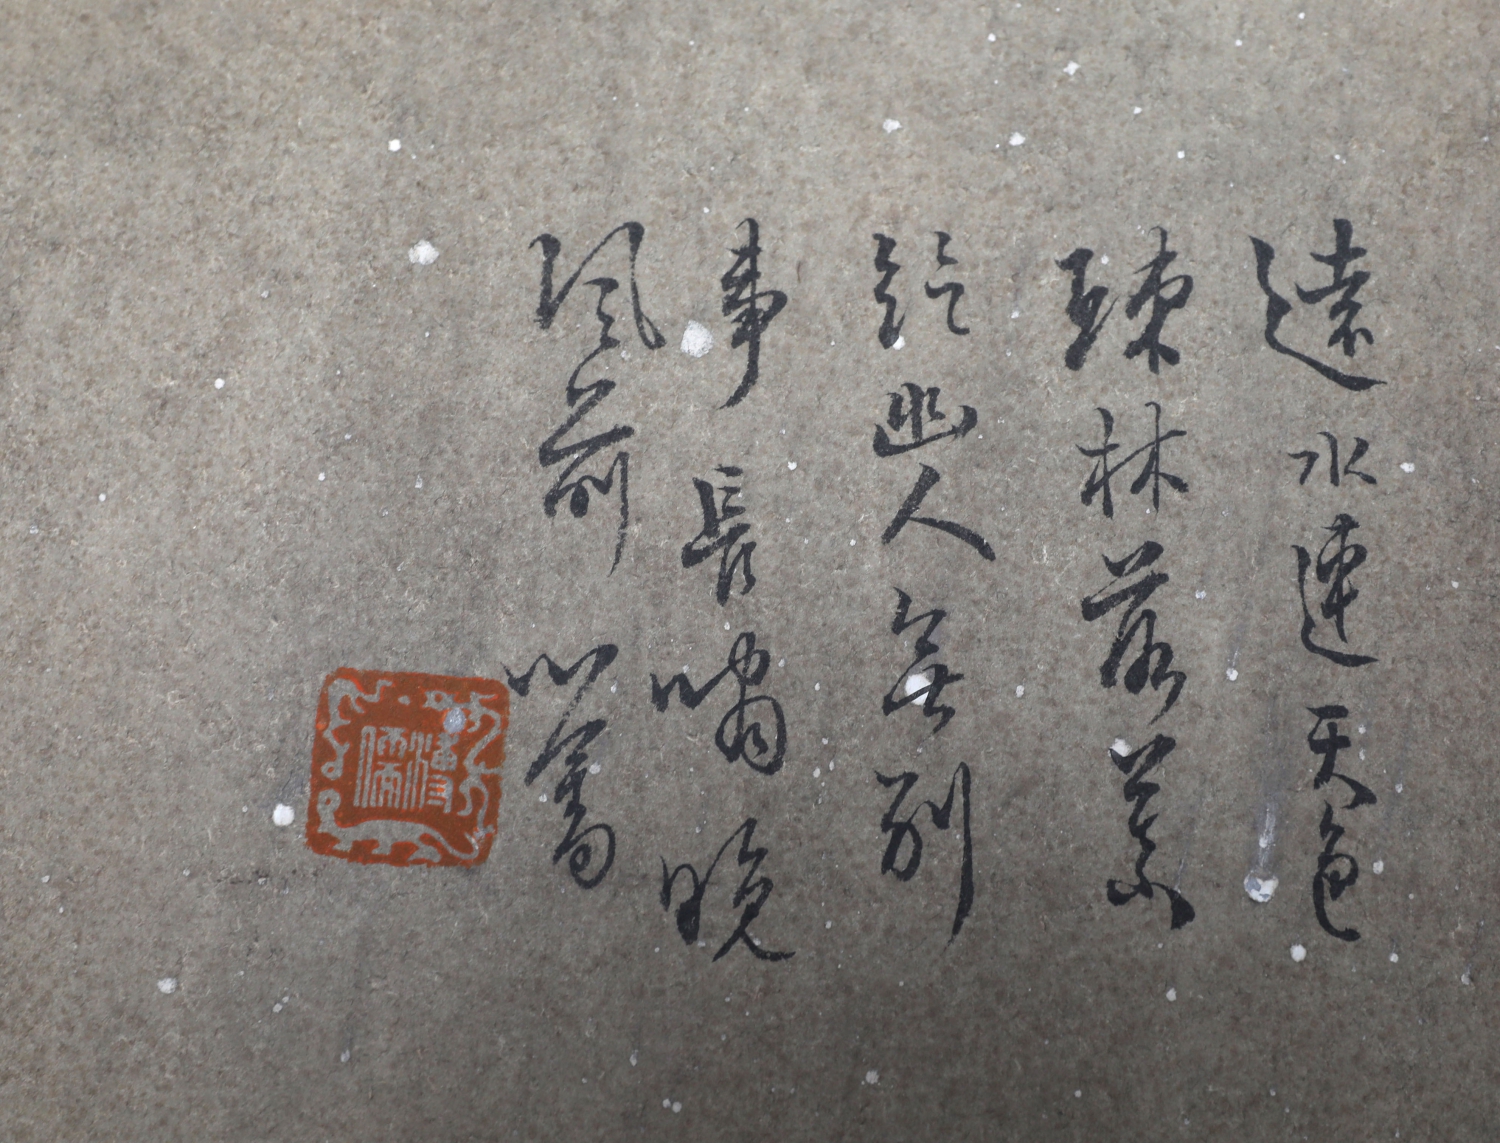 遠水連天色
疎林落素
鉛幽人無別
事長嘯晚
風前 心畬
溥儒